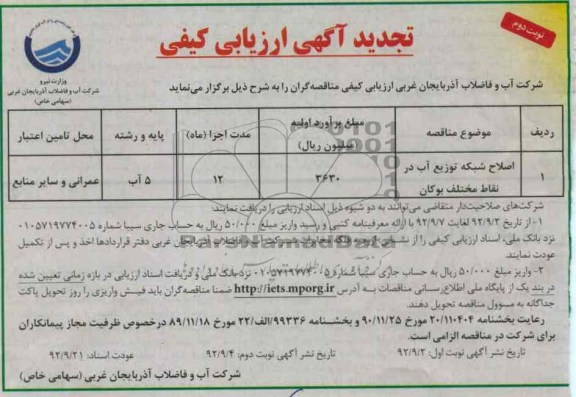 نوبت دوم
تجدید آگهی ارزیابی کیفی
وزارت نیرو
شرکت آب و فاضلاب آذربایجان غربی
(سهامی خاص)
شرکت آب و فاضلاب آذربایجان غربی ارزیابی کیفی مناقصه‌گران را به شرح ذیل برگزار می‌نماید
ردیف موضوع مناقصه مبلغ برآورد اولیه (میلیون ریال) مدت اجرا (ماه) پایه و رشته محل تامین اعتبار
۱ اصلاح شبکه توزیع آب در نقاط مختلف بوکان ۳۶۳۰ ۱۲ ۵ آب عمرانی و سایر منابع
شرکت‌های صلاحیت‌دار متقاضی می‌توانند به دو شیوه ذیل اسناد ارزیابی را دریافت نمایند:
۱- از تاریخ ۹۲/۹/۳ لغایت ۹۲/۹/۷ با ارائه معرفینامه کتبی و رسید واریز مبلغ ۵۰/۰۰۰ ریال به حساب جاری سیبا شماره ۰۱۰۵۷۱۹۷۷۴۰۰۵
نزد بانک ملی، اسناد ارزیابی کیفی را از شرکت آب و فاضلاب آذربایجان غربی دفتر قراردادها اخذ و پس از تکمیل
عودت نمایند.
۲- واریز مبلغ ۵۰/۰۰۰ ریال به حساب جاری سیبا شماره ۰۱۰۵۷۱۹۷۷۴۰۰۵ نزد بانک ملی و دریافت اسناد ارزیابی در بازه زمانی تعیین شده
در بند یک از پایگاه ملی اطلاع‌رسانی مناقصات به آدرس http://iets.mporg.ir ضمنا مناقصه‌گران باید فیش واریزی را روز تحویل پاکت
جداگانه به مسوول مناقصه تحویل دهند.
رعایت بخشنامه ۲۰/۱۱۰۴۰۴ مورخ ۹۰/۱۱/۲۵ و بخشنامه ۹۹۳۳۶/الف/۲۲ مورخ ۸۹/۱۱/۱۸ درخصوص ظرفیت مجاز پیمانکاران
برای شرکت در مناقصه الزامی است.
تاریخ نشر آگهی نوبت اول: ۹۲/۹/۳ تاریخ نشر آگهی نوبت دوم: ۹۲/۹/۴ عودت اسناد: ۹۲/۹/۲۱
شرکت آب و فاضلاب آذربایجان غربی (سهامی خاص)